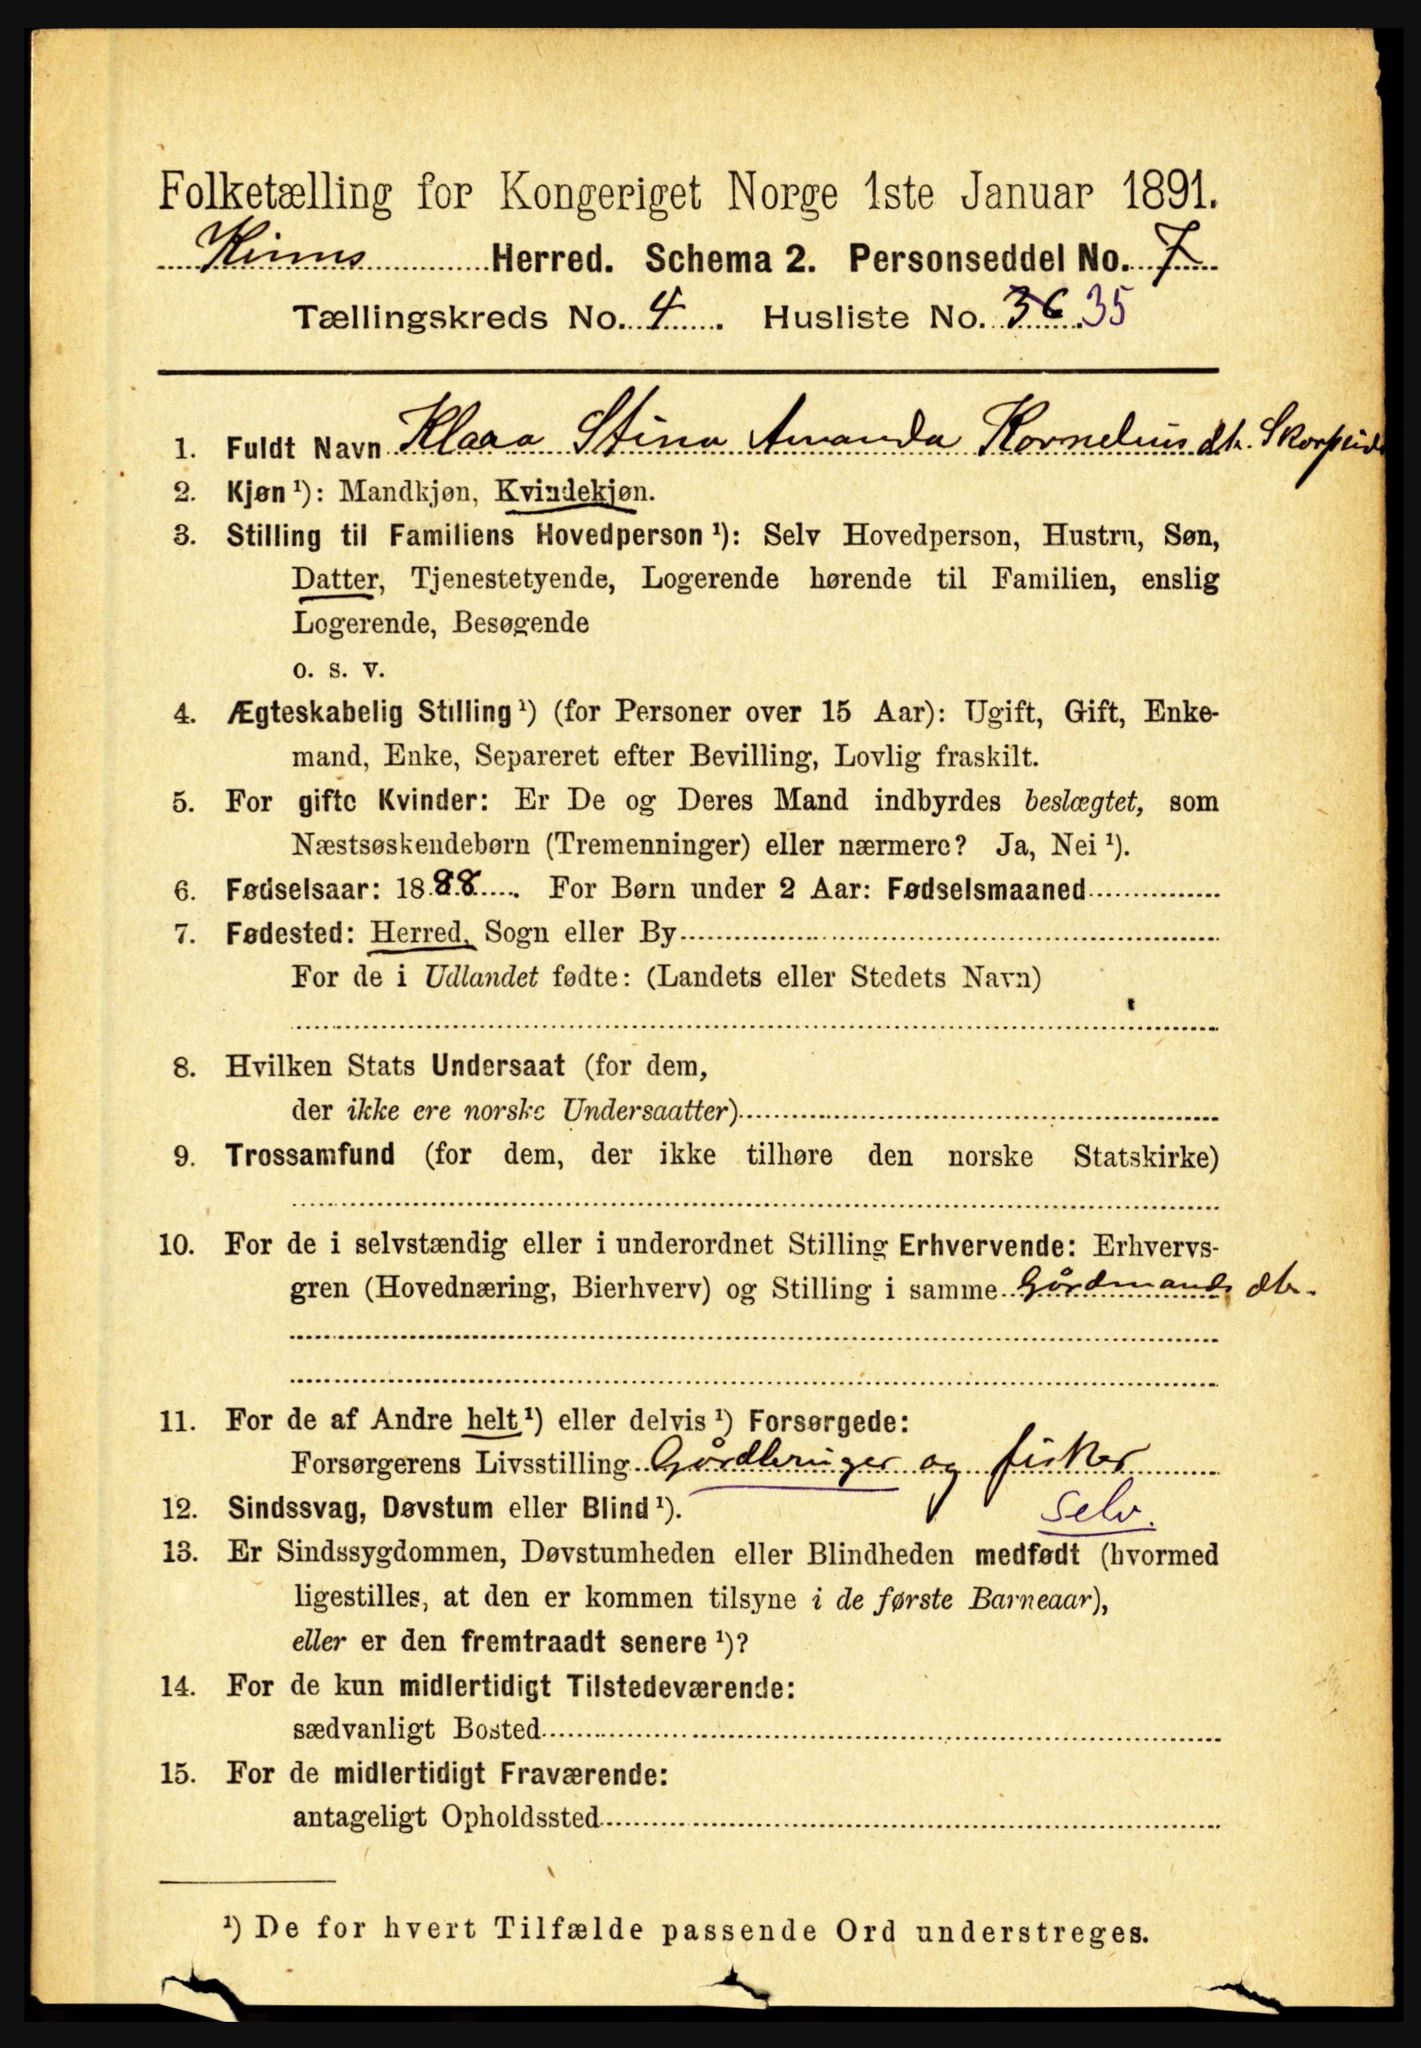 Folketælling for Kongeriget Norge 1ste Januar 1891.
Kinns Herred. Schema 2. Personseddel No. 7
Tællingskreds No. 4. Husliste No. 36 35
1. Fuldt Navn Klara Stina Amanda Kornelius dtr.
2. Kjøn ¹): Mandkjøn, Kvindekjøn.
3. Stilling til Familiens Hovedperson ¹): Selv Hovedperson, Hustru, Søn,
Datter, Tjenestetyende, Logerende hørende til Familien, enslig
Logerende, Besøgende
o. s. v.
4. Ægteskabelig Stilling ¹) (for Personer over 15 Aar): Ugift, Gift, Enke-
mand, Enke, Separeret efter Bevilling, Lovlig fraskilt.
5. For gifte Kvinder: Er De og Deres Mand indbyrdes beslægtet, som
Næstsøskendebørn (Tremenninger) eller nærmere? Ja, Nei ¹).
6. Fødselsaar: 1888. For Børn under 2 Aar: Fødselsmaaned
7. Fødested: Herred, Sogn eller By
For de i Udlandet fødte: (Landets eller Stedets Navn)
8. Hvilken Stats Undersaat (for dem,
der ikke ere norske Undersaatter)
9. Trossamfund (for dem, der ikke tilhøre den norske Statskirke)
10. For de i selvstændig eller i underordnet Stilling Erhvervende: Erhvervs-
gren (Hovednæring, Bierhverv) og Stilling i samme Gårdmands dtr.
11. For de af Andre helt ¹) eller delvis ¹) Forsørgede:
Forsørgerens Livsstilling Gårdbruger og fisker
12. Sindssvag, Døvstum eller Blind ¹). selv.
13. Er Sindssygdommen, Døvstumheden eller Blindheden medfødt (hvormed
ligestilles, at den er kommen tilsyne i de første Barneaar),
eller er den fremtraadt senere ¹)?
14. For de kun midlertidigt Tilstedeværende:
sædvanligt Bosted
15. For de midlertidigt Fraværende:
antageligt Opholdssted
¹) De for hvert Tilfælde passende Ord understreges.